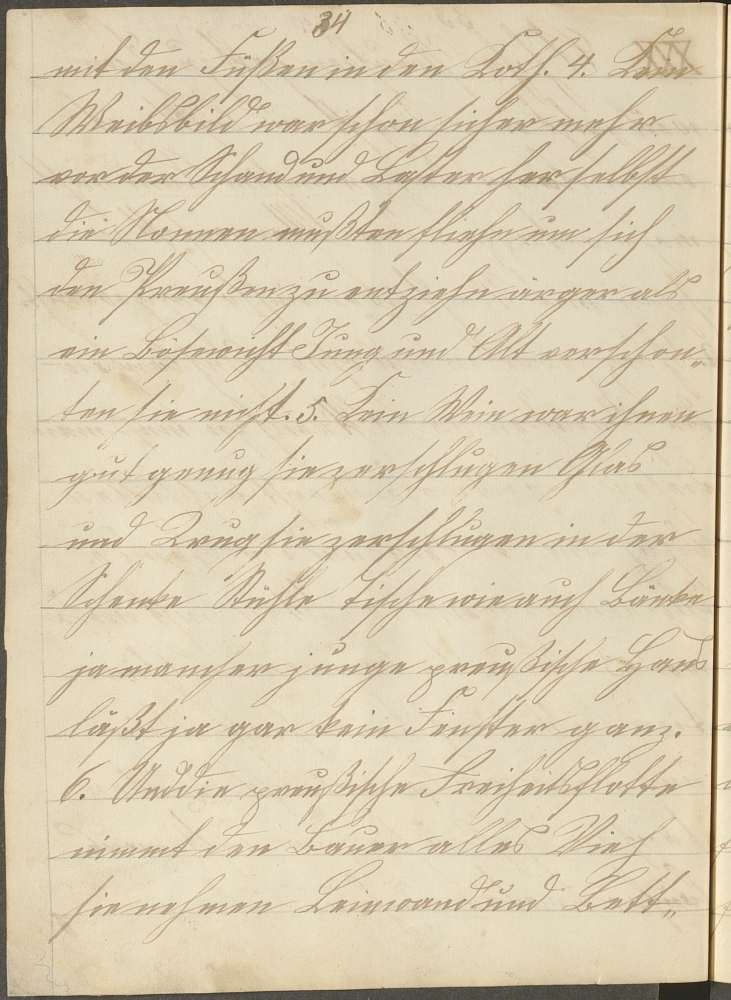 34
mit den Füßen in den Koth. 4. Kein
Weibsbild war schon sicher mehr
vor der Schand und Laster her selbst
die Nonnen mußten fliehn um sich
den Preußen zu entziehn ärger als
ein Bösewicht Jung und Alt verschon„
ten sie nicht. 5. Kein Wein war ihnen
gut genug sie zerschlugen Glas
und Krug sie zerschlugen in der
Schenke Stühle Tische wie auch Bänke
ja mancher junge preußische Hans
läßt ja gar kein Fenster ganz.
6. Und die preußische Freiheitsflotte
nimmt den Bauer alles Vieh
sie nehmen Leinwand und Bett„